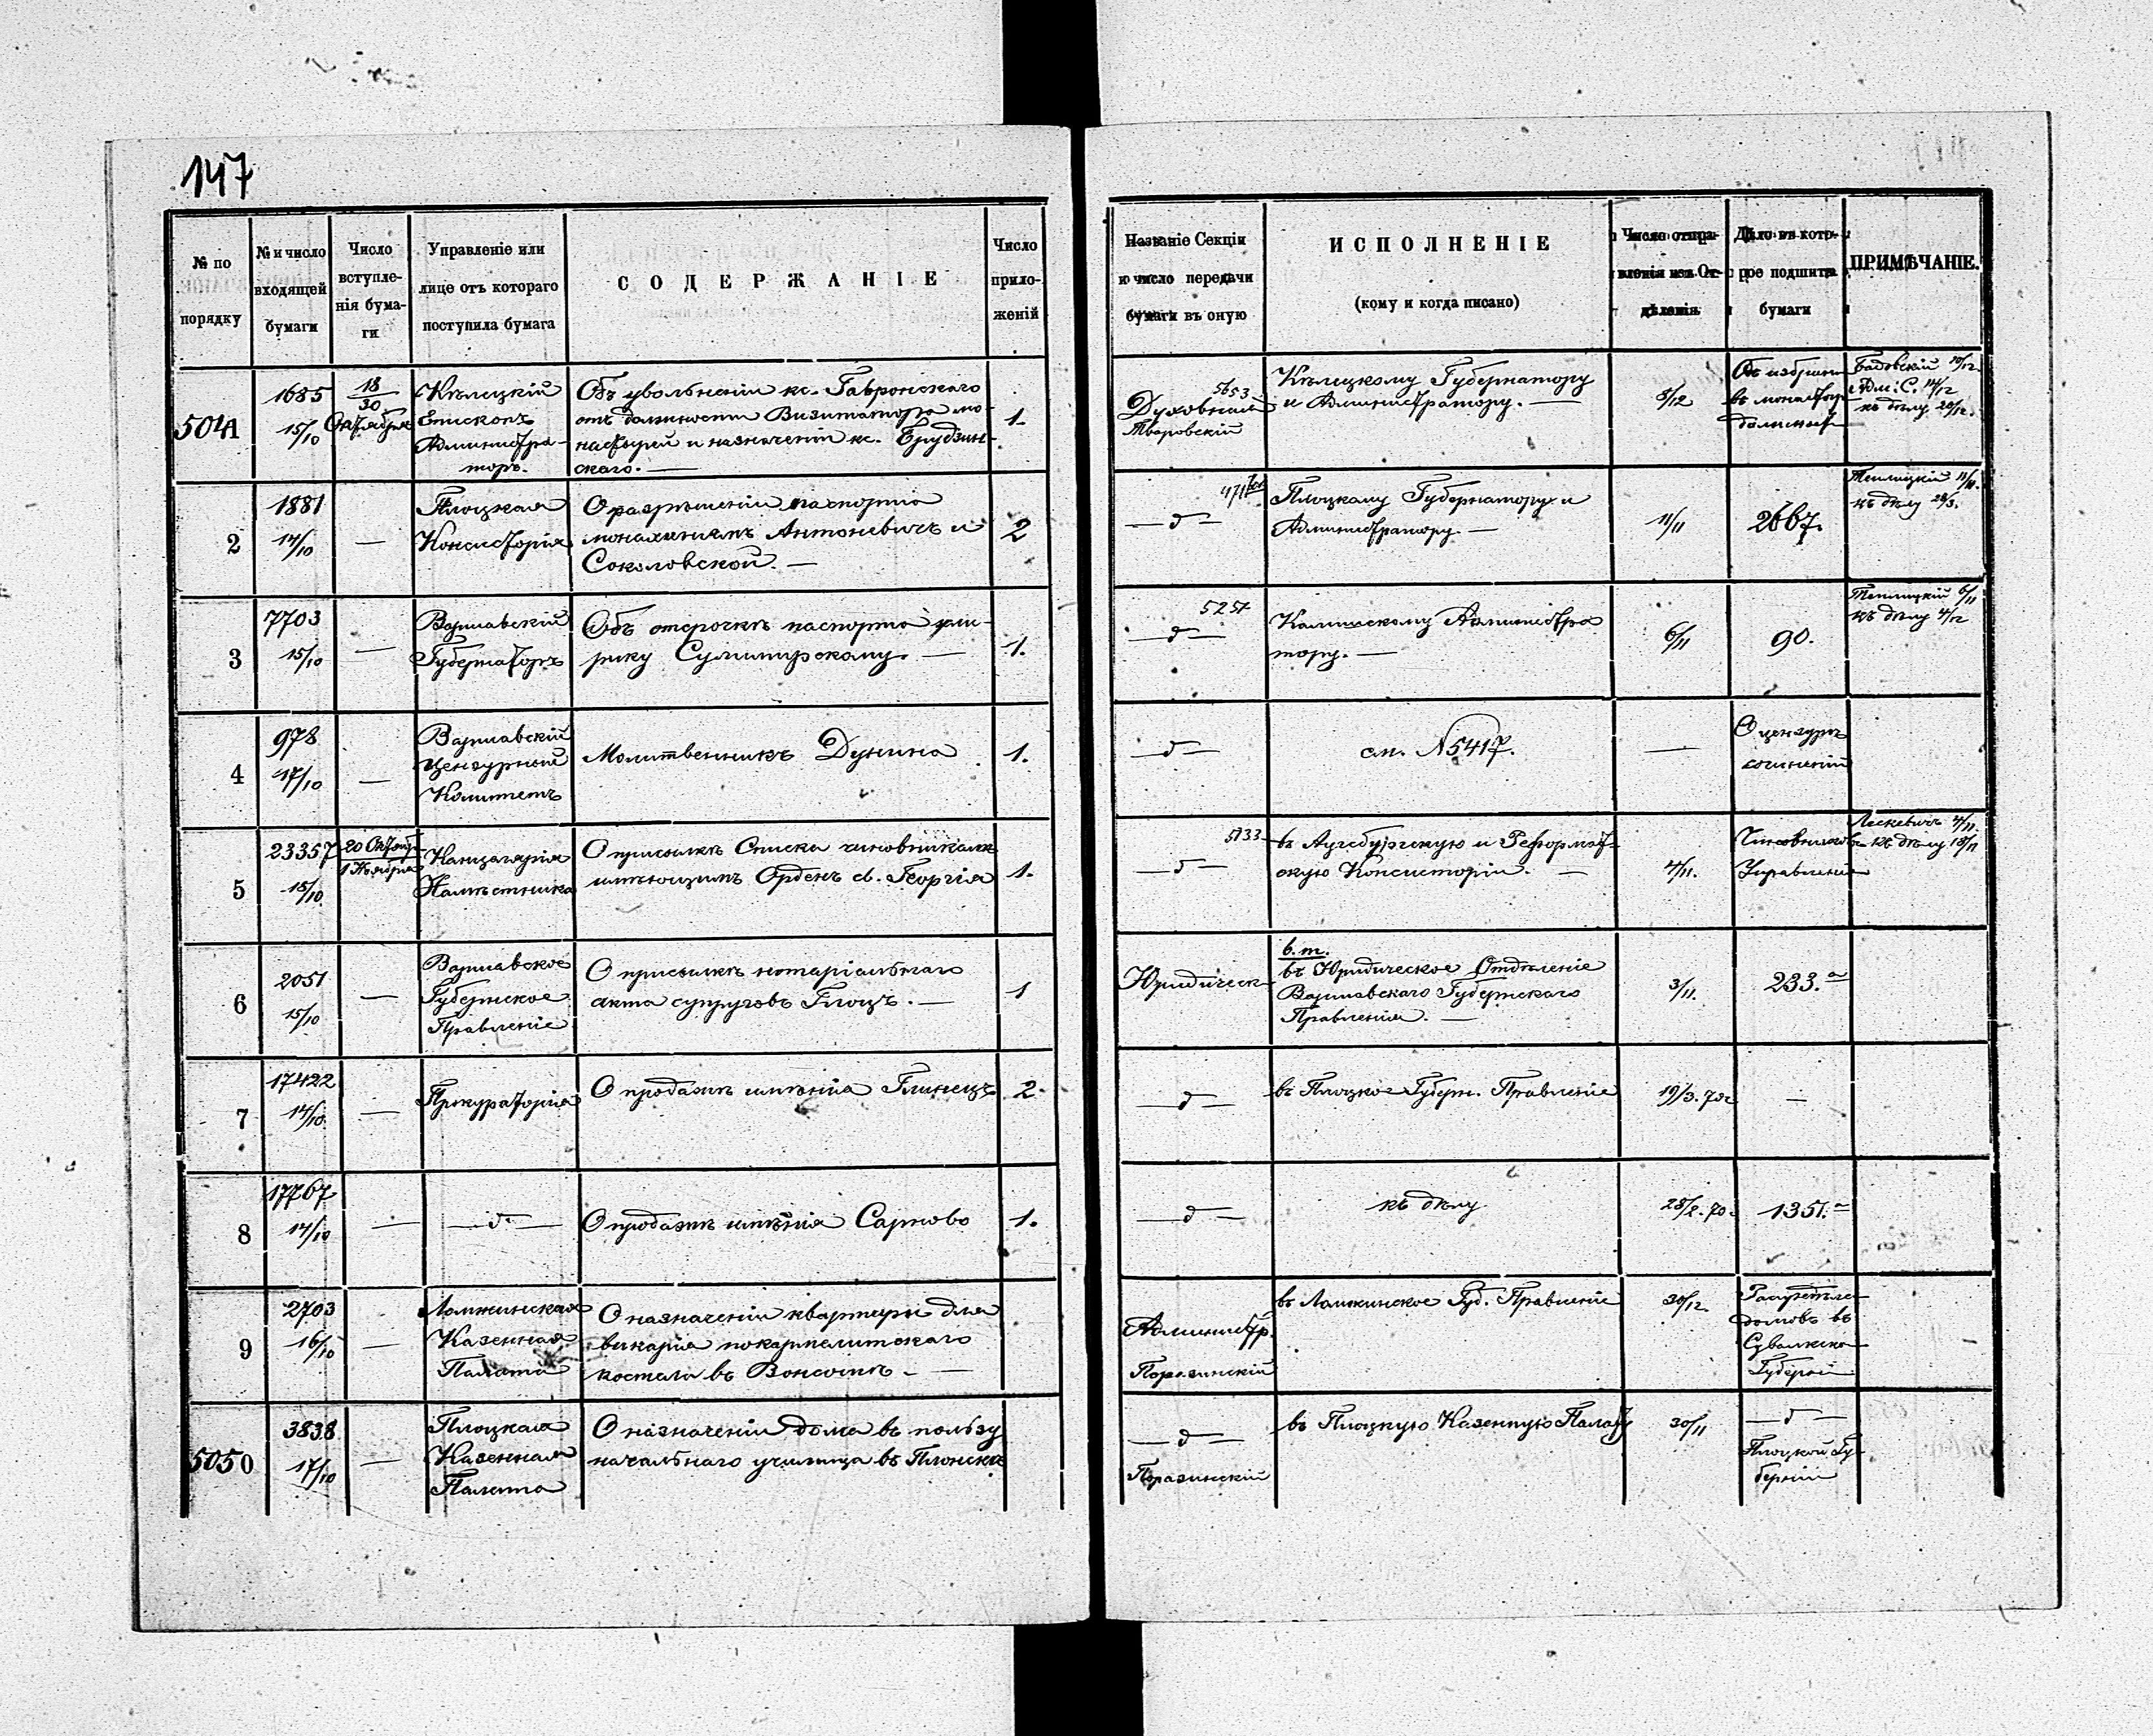 147
№ по порядку
№ и число входящей бумаги
Число вступле- нія бума- ги
Управленіе или лице отъ котораго поступила бумага
СОДЕРЖАНІЕ
Число прило- женій
Названіе Секціи и число передачи бумаги въ оную
ИСПОЛНЕНІЕ
(кому и когда писано)
Число отпра- вленія изъ От- дѣленія
Дѣло въ кото- рое подшита бумаги
ПРИМѢЧАНІЕ.
5041
1685
15/10
18/30 Октября
Кѣлецкій
Епископъ
Администра-
торъ.
Объ увольненіи кс. Гавронскаго
отъ должности Визитатора мо-
настырей и назначеніи кс. Брудзин-
скаго. —
1.
5653
Духовный
Кѣлецкому Губернатору
и Администратору. —
5/12
въ монастыр
Бадовскій 10/12.
къ дѣлу 20/12.
2
1881
14/10
—
Плоцкая
Консисторія
О разрѣшеніи паспорта
монахинямъ Антоневичъ и
Соколовской. —
2
— д —
Плоцкому Губернатору и
Администратору. —
11/11
2667.
къ дѣлу
3
7703
15/10
—
Варшавскій
Губернаторъ
Объ отсрочкѣ паспорта кли-
рику Сулимирскому. —
1.
525
— д —
Калишскому Администра
тору. —
6/11
90.
6/11
къ дѣлу 4/12
4
978
17/10
—
Варшавскій
Цензурный
Комитетъ
Молитвенникъ Дунина
1.
— д —
см. №5417.
—
О цензурѣ
сочиненій
5
23357
15/10
20 Октября
1 Ноября
Канцелярія
Намѣстника
О присылкѣ Списка чиновникамъ
имѣющимъ Орденъ св. Георгія
1.
5133
— д —
въ Аугсбургскую и Реформат-
скую Консисторіи. —
4/11.
Чиновниковъ
Управленія
Лескевичъ 4/11.
къ дѣлу 18/11
6
2051
15/10
—
Варшавское
Губернское
Правленіе
О присылкѣ нотаріальнаго
акта супруговъ Глоцъ. —
1
Юридическ
в. т.
въ Юридическое Отдѣленіе
Варшавскаго Губернскаго
Правленія. —
3/11.
233.а
7
17422
14/10
—
Прокураторія
О продажѣ имѣнія Глинецъ
2.
— д —
въ Плоцкое Губерн. Правленіе
19/3. 70г
—
8
17767
14/10
—
— д —
О продажѣ имѣнія Сарново
1.
— д —
къ дѣлу
28/2. 70.
1351.а
9
2703
16/10
—
Ломжинская
Казенная
Палата
О назначеніи квартиры для
викарія покармелитскаго
костела въ Вонсошѣ. —
Администр.
Поразинскій
въ Ломжинское Губ. Правленіе
30/12.
домовъ въ
Сувалкско
Губерніи
5050
3838
17/10
—
Плоцкая
Казенная
Палата
О назначеніи дома въ пользу
начальнаго училища въ Плонскѣ
— д —
Поразинскій
въ Плоцкую Казенную Палату
30/11
— д —
Плоцкой Гу-
берніи